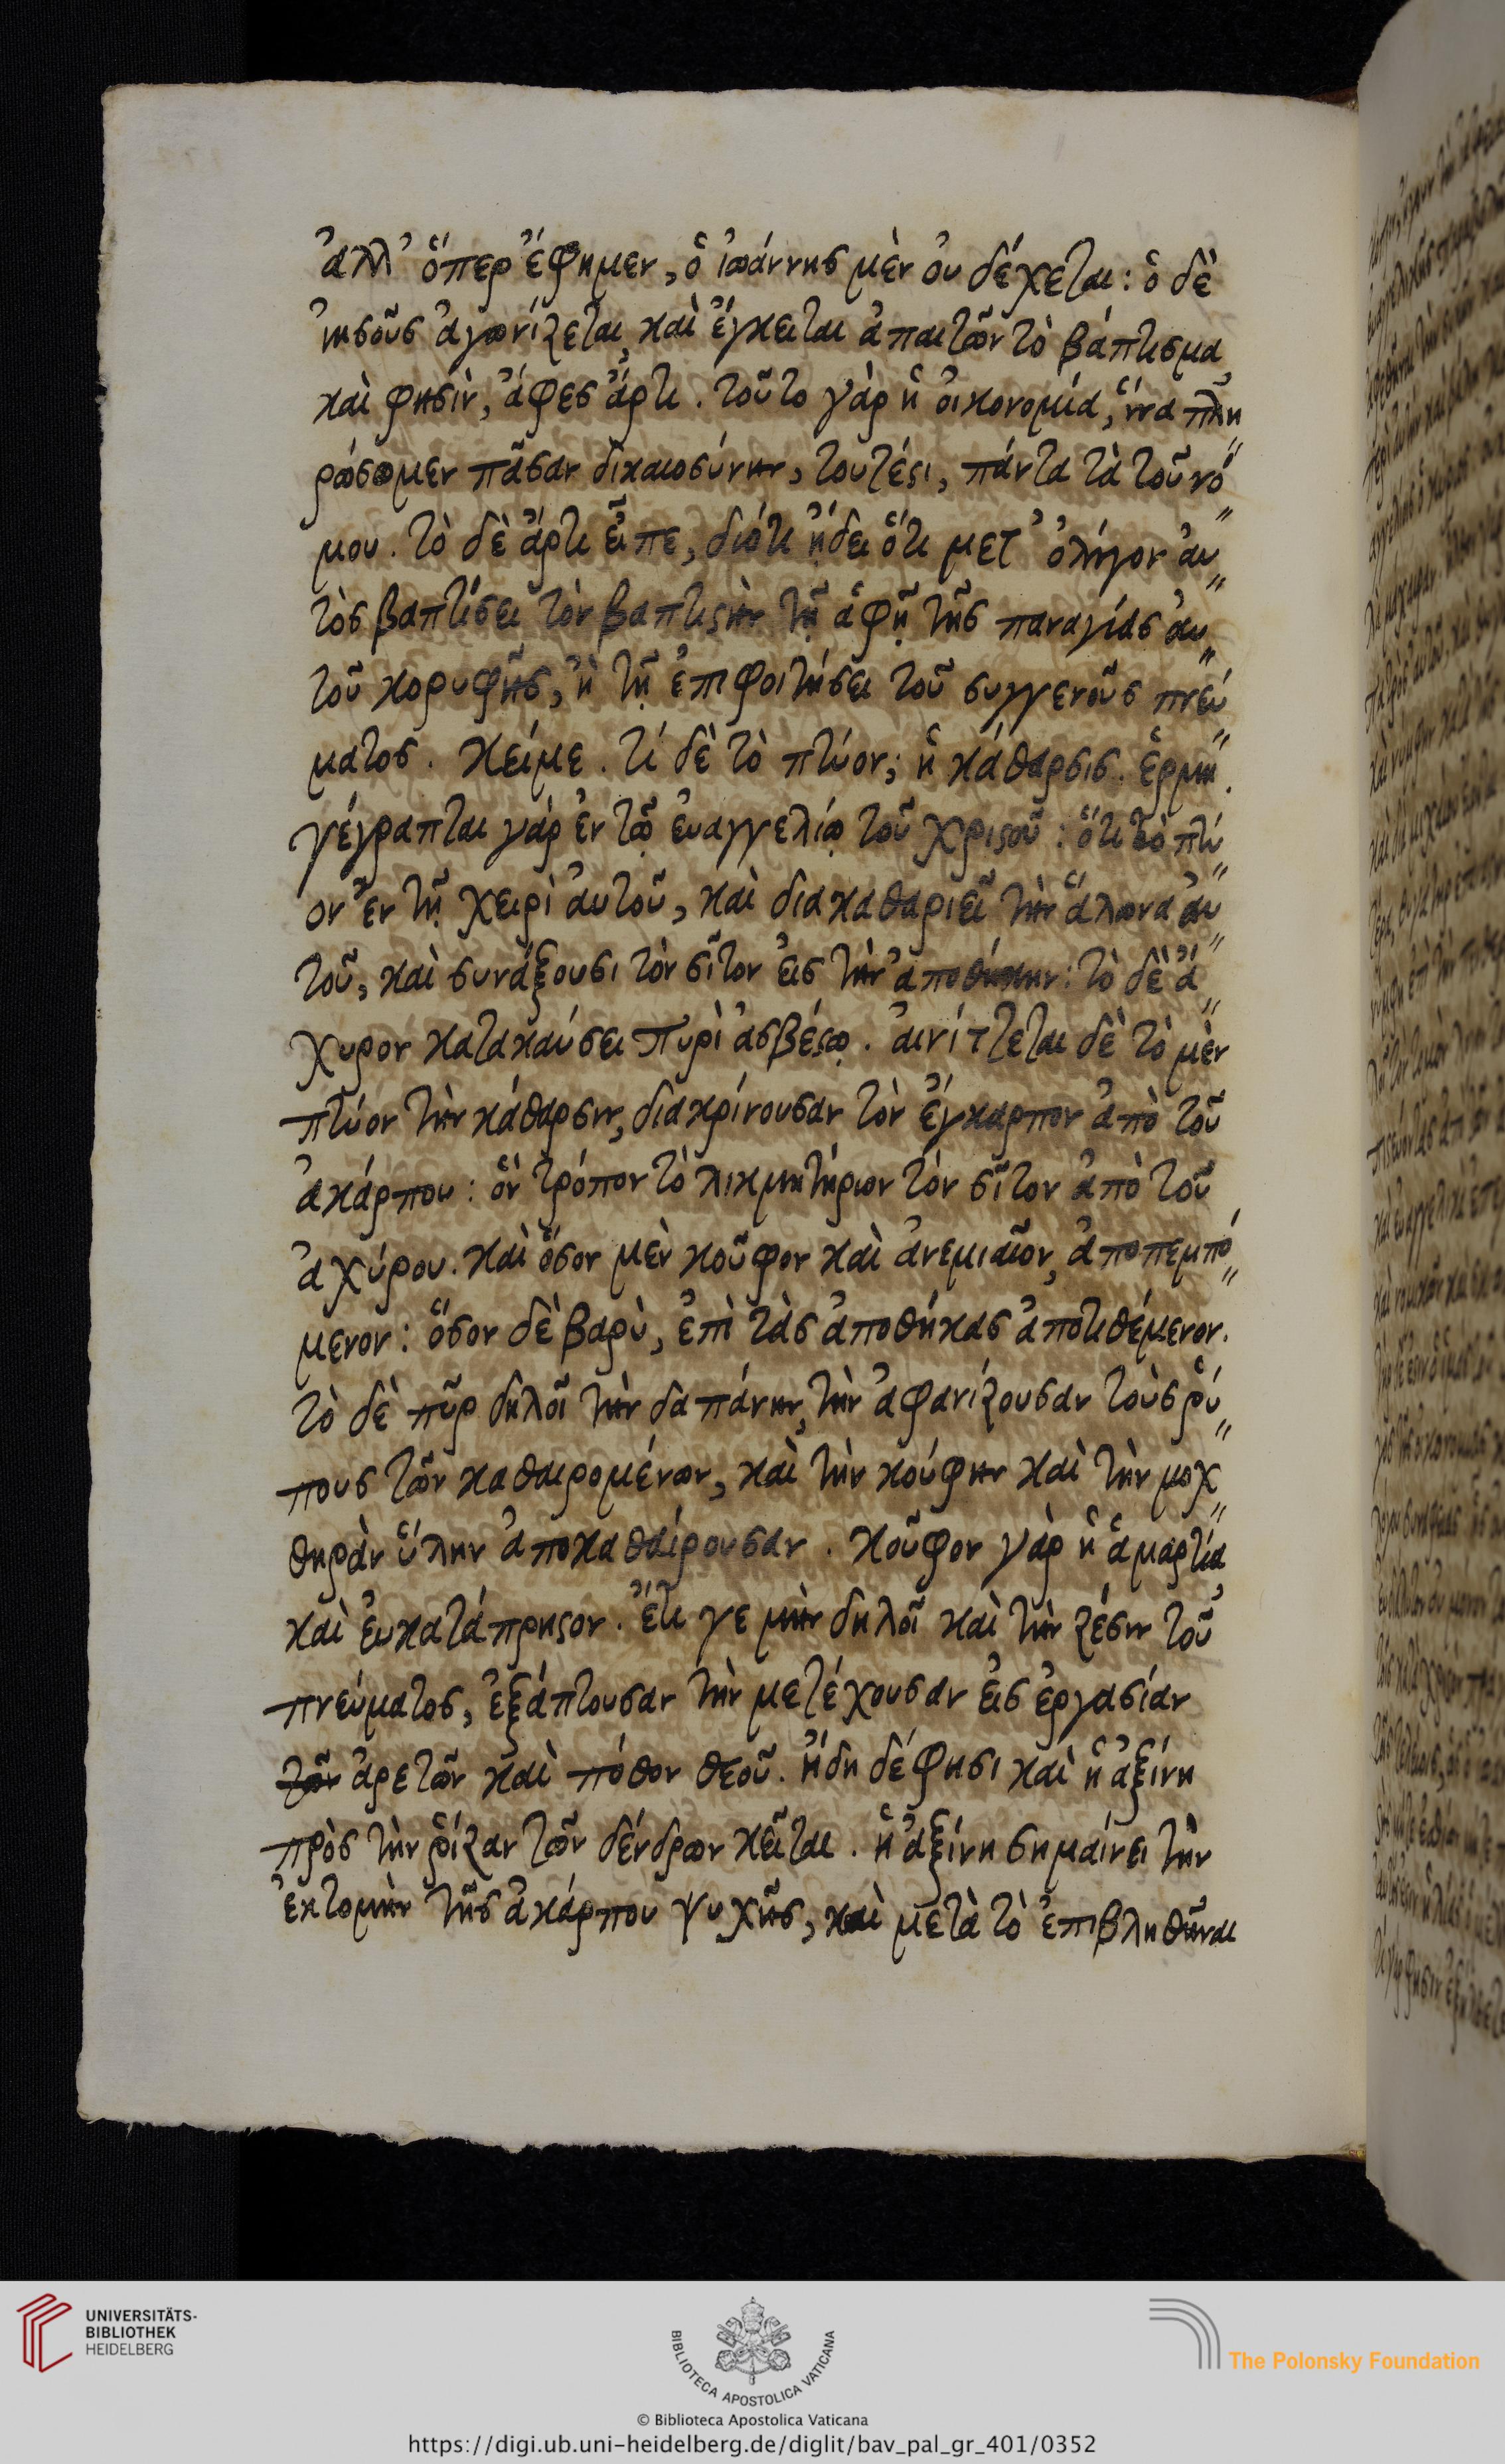 ἀλλ' ὅπερ ἔφημεν, ὁ ἰωάννης μὲν οὐ δέχεται: ὁ δὲ
ἰησοῦς ἀγωνίζεται, καὶ ἔγκειται ἀπαιτῶν τὸ βάπτισμα,
καὶ φησὶν, ἄφες ἄρτι. τοῦτο γὰρ ἡ οἰκονομία, ἵνα πλη
ρώσωμεν πᾶσαν δικαιοσύνην, τουτέστι, πάντα τὰ τοῦ νό
μου. τὸ δὲ ἄρτι εἶπε, διότι ᾔδει ὅτι μετ' ὀλίγον αὐ
τὸς βαπτίσει τὸν βαπτιστὴν τῇ ἁφῇ τῆς παναγίας αὐ
τοῦ κορυφῆς, ἢ τῇ ἐπιφοιτήσει τοῦ συγγενοῦς πνεύ
ματος. κείμε. τί δὲ τὸ πτύον; ἡ κάθαρσις. ἑρμη.
γέγραπται γάρ ἐν τῷ εὐαγγελίῳ τοῦ χριστοῦ: ὅτι τὸ πτύ
ον ἐν τῇ χειρὶ αὐτοῦ, καὶ διακαθαριεῖ τὴν ἅλωνα αὐ
τοῦ, καὶ συνάξουσι τὸν σῖτον εἰς τὴν ἀποθήκην: τὸ δὲ ἄ
χυρον κατακαύσει πυρὶ ἀσβέστῳ. αἰνίττεται δὲ τὸ μὲν
πτύον τὴν κάθαρσιν, διακρίνουσαν τὸν ἔγκαρπον ἀπὸ τοῦ
ἀκάρπου: ὃν τρόπον τὸ λικμητήριον τὸν σῖτον ἀπὸ τοῦ
ἀχύρου. καὶ ὅσον μὲν κοῦφον καὶ ἀνεμιαῖον, ἀποπεμπό
μενον: ὅσον δὲ βαρὺ, ἐπὶ τὰς ἀποθήκας ἀποτιθέμενον.
τὸ δὲ πῦρ δηλοῖ τὴν δαπάνην, τὴν ἀφανίζουσαν τοὺς ῥύ
πους τῶν καθαιρομένων, καὶ τὴν κούφην καὶ τὴν μοχ
θηρὰν ὕλην ἀποκαθαίρουσαν. κοῦφον γὰρ ἡ ἁμαρτία,
καὶ εὐκατάπρηστον. ἔτι γε μὴν δηλοῖ καὶ τὴν ζέσιν τοῦ
πνεύματος, ἐξάπτουσαν τὴν μετέχουσαν εἰς ἐργασίαν
τῶν ἀρετῶν καὶ πόθον θεοῦ. ἤδη δέ φησι καὶ ἡ ἀξίνη
πρὸς τὴν ῥίζαν τῶν δένδρων κεῖται. ἡ ἀξίνη σημαίνει τὴν
ἐκτομὴν τῆς ἀκάρπου ψυχῆς, καὶ μετὰ τὸ ἐπιβληθῆναι
UNIVERSITÄTS-
BIBLIOTHEK
HEIDELBERG
BIBLIOTECA APOSTOLICA VATICANA
The Polonsky Foundation
© Biblioteca Apostolica Vaticana
https://digi.ub.uni-heidelberg.de/diglit/bav_pal_gr_401/0352